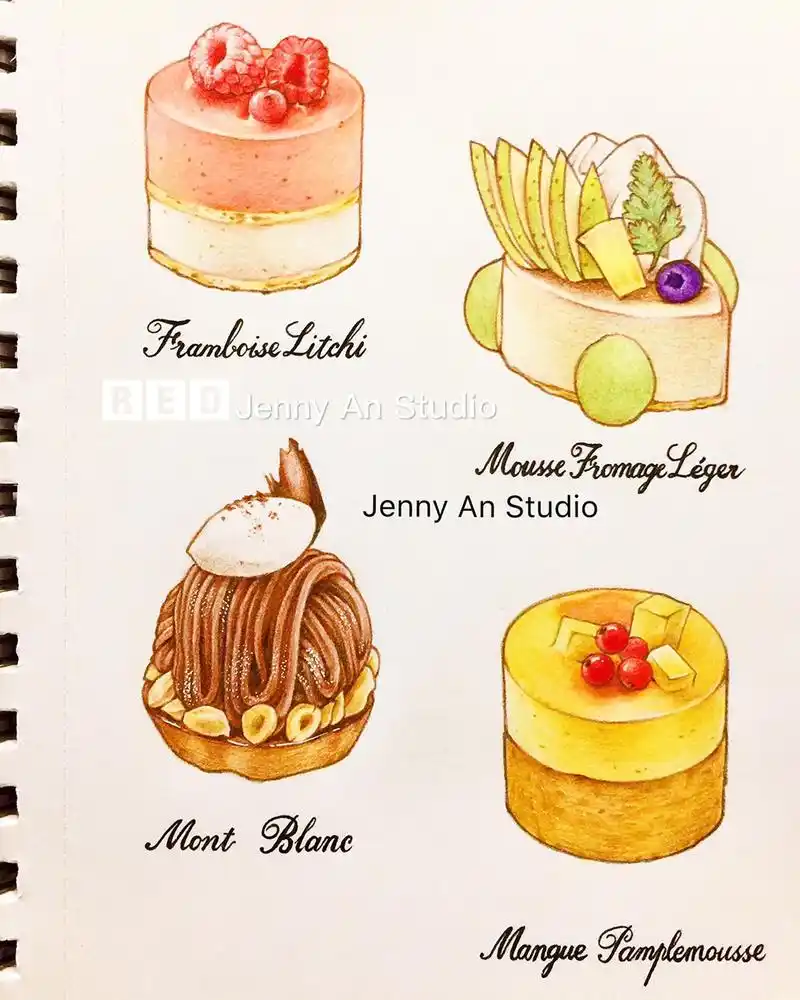 Framboise Litchi
RED Jenny An Studio
Mousse Fromage Léger
Jenny An Studio
Mont Blanc
Mangue Pamplemousse